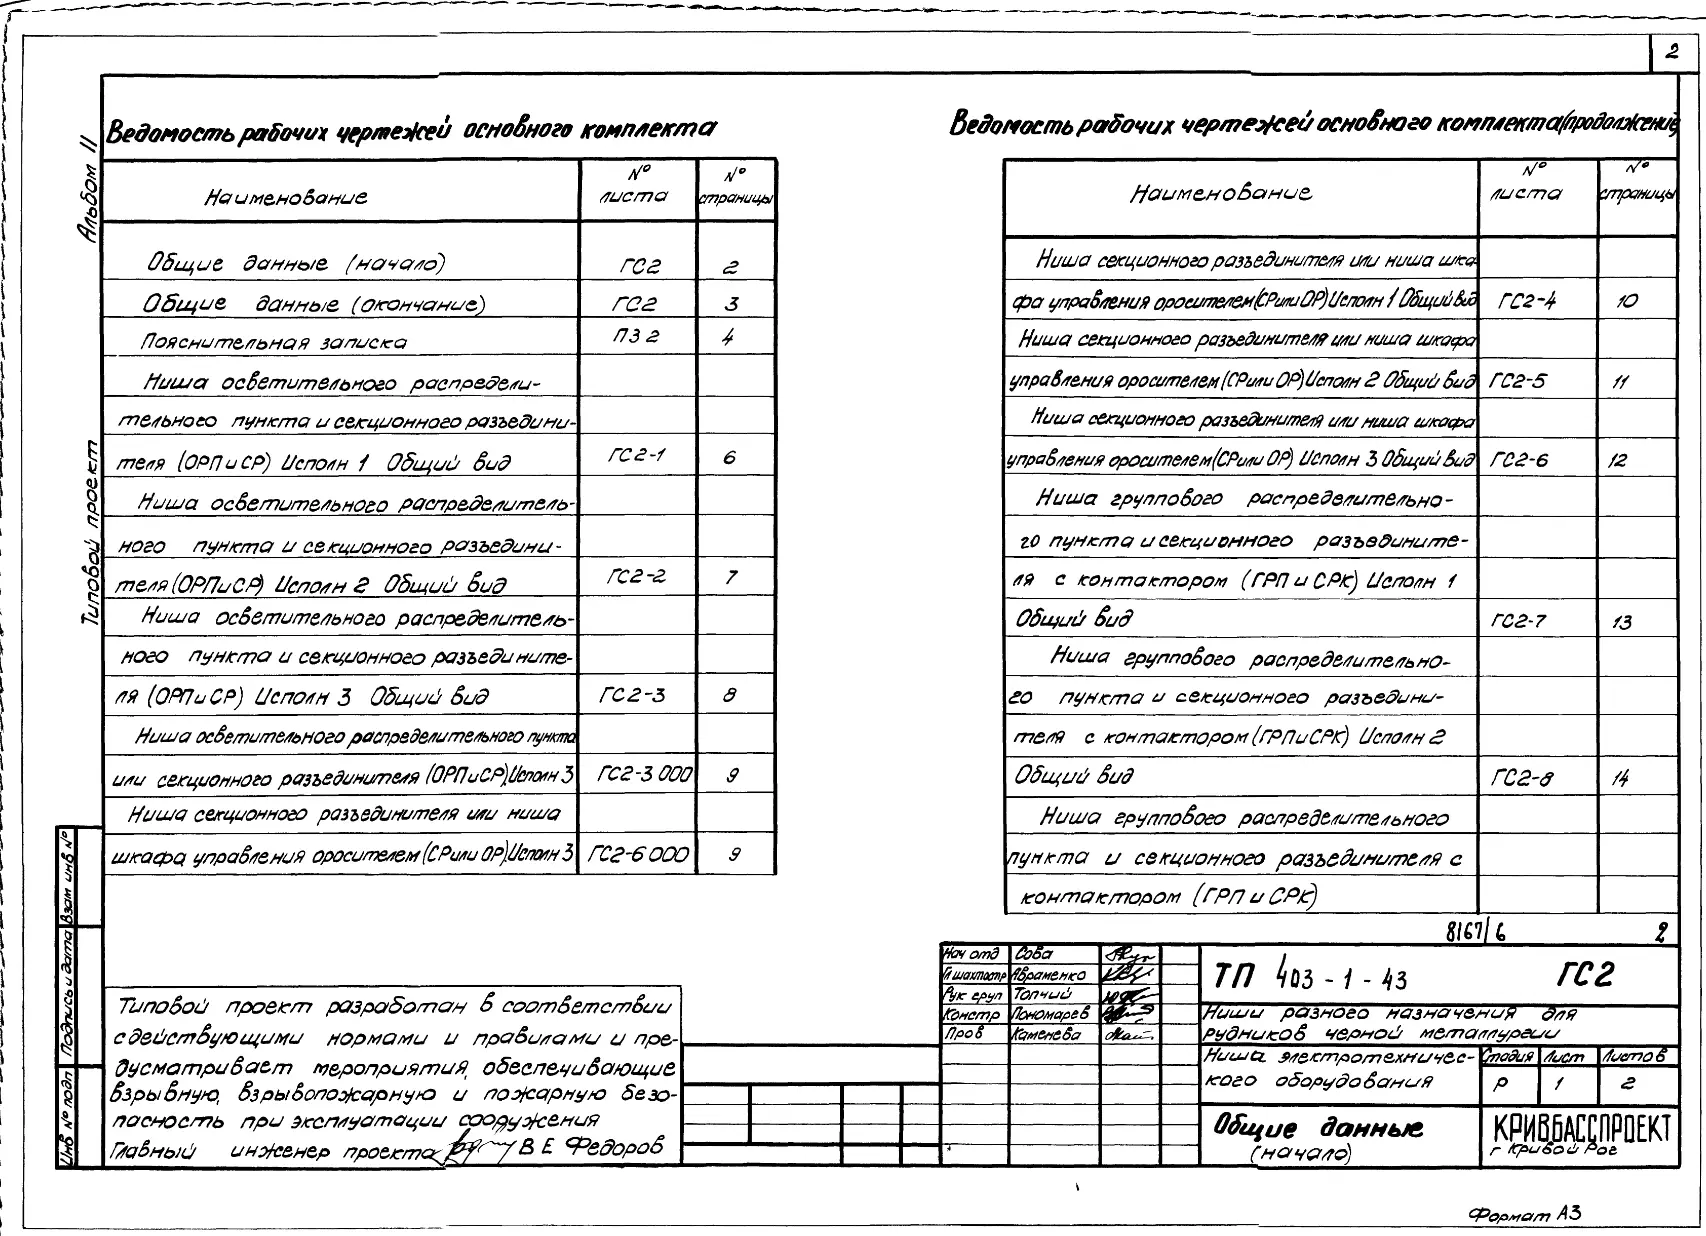 2
Альбом II
Типовой проект
Ведомость рабочих чертежей основного комплекта
Наименование № листа № страницы
Общие данные (начало) ГС2 2
Общие данные (окончание) ГС2 3
Пояснительная записка ПЗ 2 4
Ниша осветительного распредели-
тельного пункта и секционного разъедини-
теля (ОРП и СР) Исполн 1 Общий вид ГС2-1 6
Ниша осветительного распределитель-
ного пункта и секционного разъедини-
теля (ОРП и СР) Исполн 2 Общий вид ГС2-2 7
Ниша осветительного распределитель-
ного пункта и секционного разъедините-
ля (ОРП и СР) Исполн 3 Общий вид ГС2-3 8
Ниша осветительного распределительного пункта
или секционного разъединителя (ОРП и СР) Исполн 3 ГС2-3 000 9
Ниша секционного разъединителя или ниша
шкафа управления оросителем (СР или ОР) Исполн 3 ГС2-6 000 9
Ведомость рабочих чертежей основного комплекта (продолжение
Наименование № листа № страницы
Ниша секционного разъединителя или ниша шка-
фа управления оросителем (СР или ОР) Исполн 1 Общий вид ГС2-4 10
Ниша секционного разъединителя или ниша шкафа
управления оросителем (СР или ОР) Исполн 2 Общий вид ГС2-5 11
Ниша секционного разъединителя или ниша шкафа
управления оросителем (СР или ОР) Исполн 3 Общий вид ГС2-6 12
Ниша группового распределительно-
го пункта и секционного разъедините-
ля с контактором (ГРП и СРК) Исполн 1
Общий вид ГС2-7 13
Ниша группового распределительно-
го пункта и секционного разъедини-
теля с контактором (ГРП и СРК) Исполн 2
Общий вид ГС2-8 14
Ниша группового распределительного
пункта и секционного разъединителя с
контактором (ГРП и СРК)
8167/6 2
Типовой проект разработан в соответствии
с действующими нормами и правилами и пре-
дусматривает мероприятия, обеспечивающие
взрывную, взрывопожарную и пожарную безо-
пасность при эксплуатации сооружения
Главный инженер проекта В Е Федоров
Взам инв №
Подпись и дата
Инв № подл
Нач отд Сова
Гл шахтостр Авраменко
Рук груп Топчий
Констр Пономарев
Пров Каменева
ТП 403-1-43 ГС2
Ниши разного назначения для
рудников черной металлургии
Ниша электротехничес-
кого оборудования
Стадия Лист Листов
Р 1 2
Общие данные
(начало)
КРИВБАССПРОЕКТ
г Кривой Рог
Формат А3